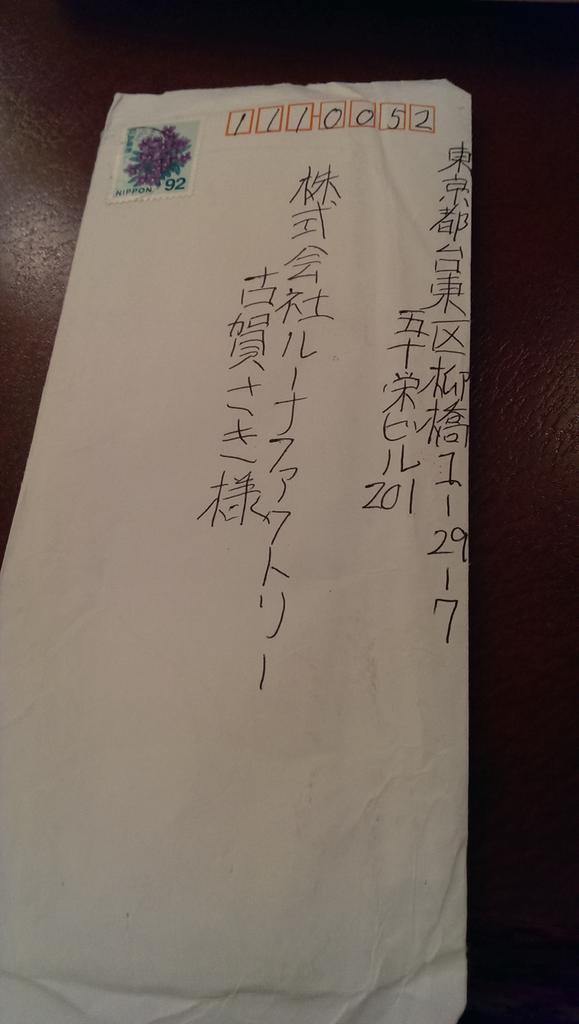 1110052
東京都台東区柳橋1-29-7
五十栄ビル
201
株式会社ルーナファクトリー
古賀さき様
NIPPON 92